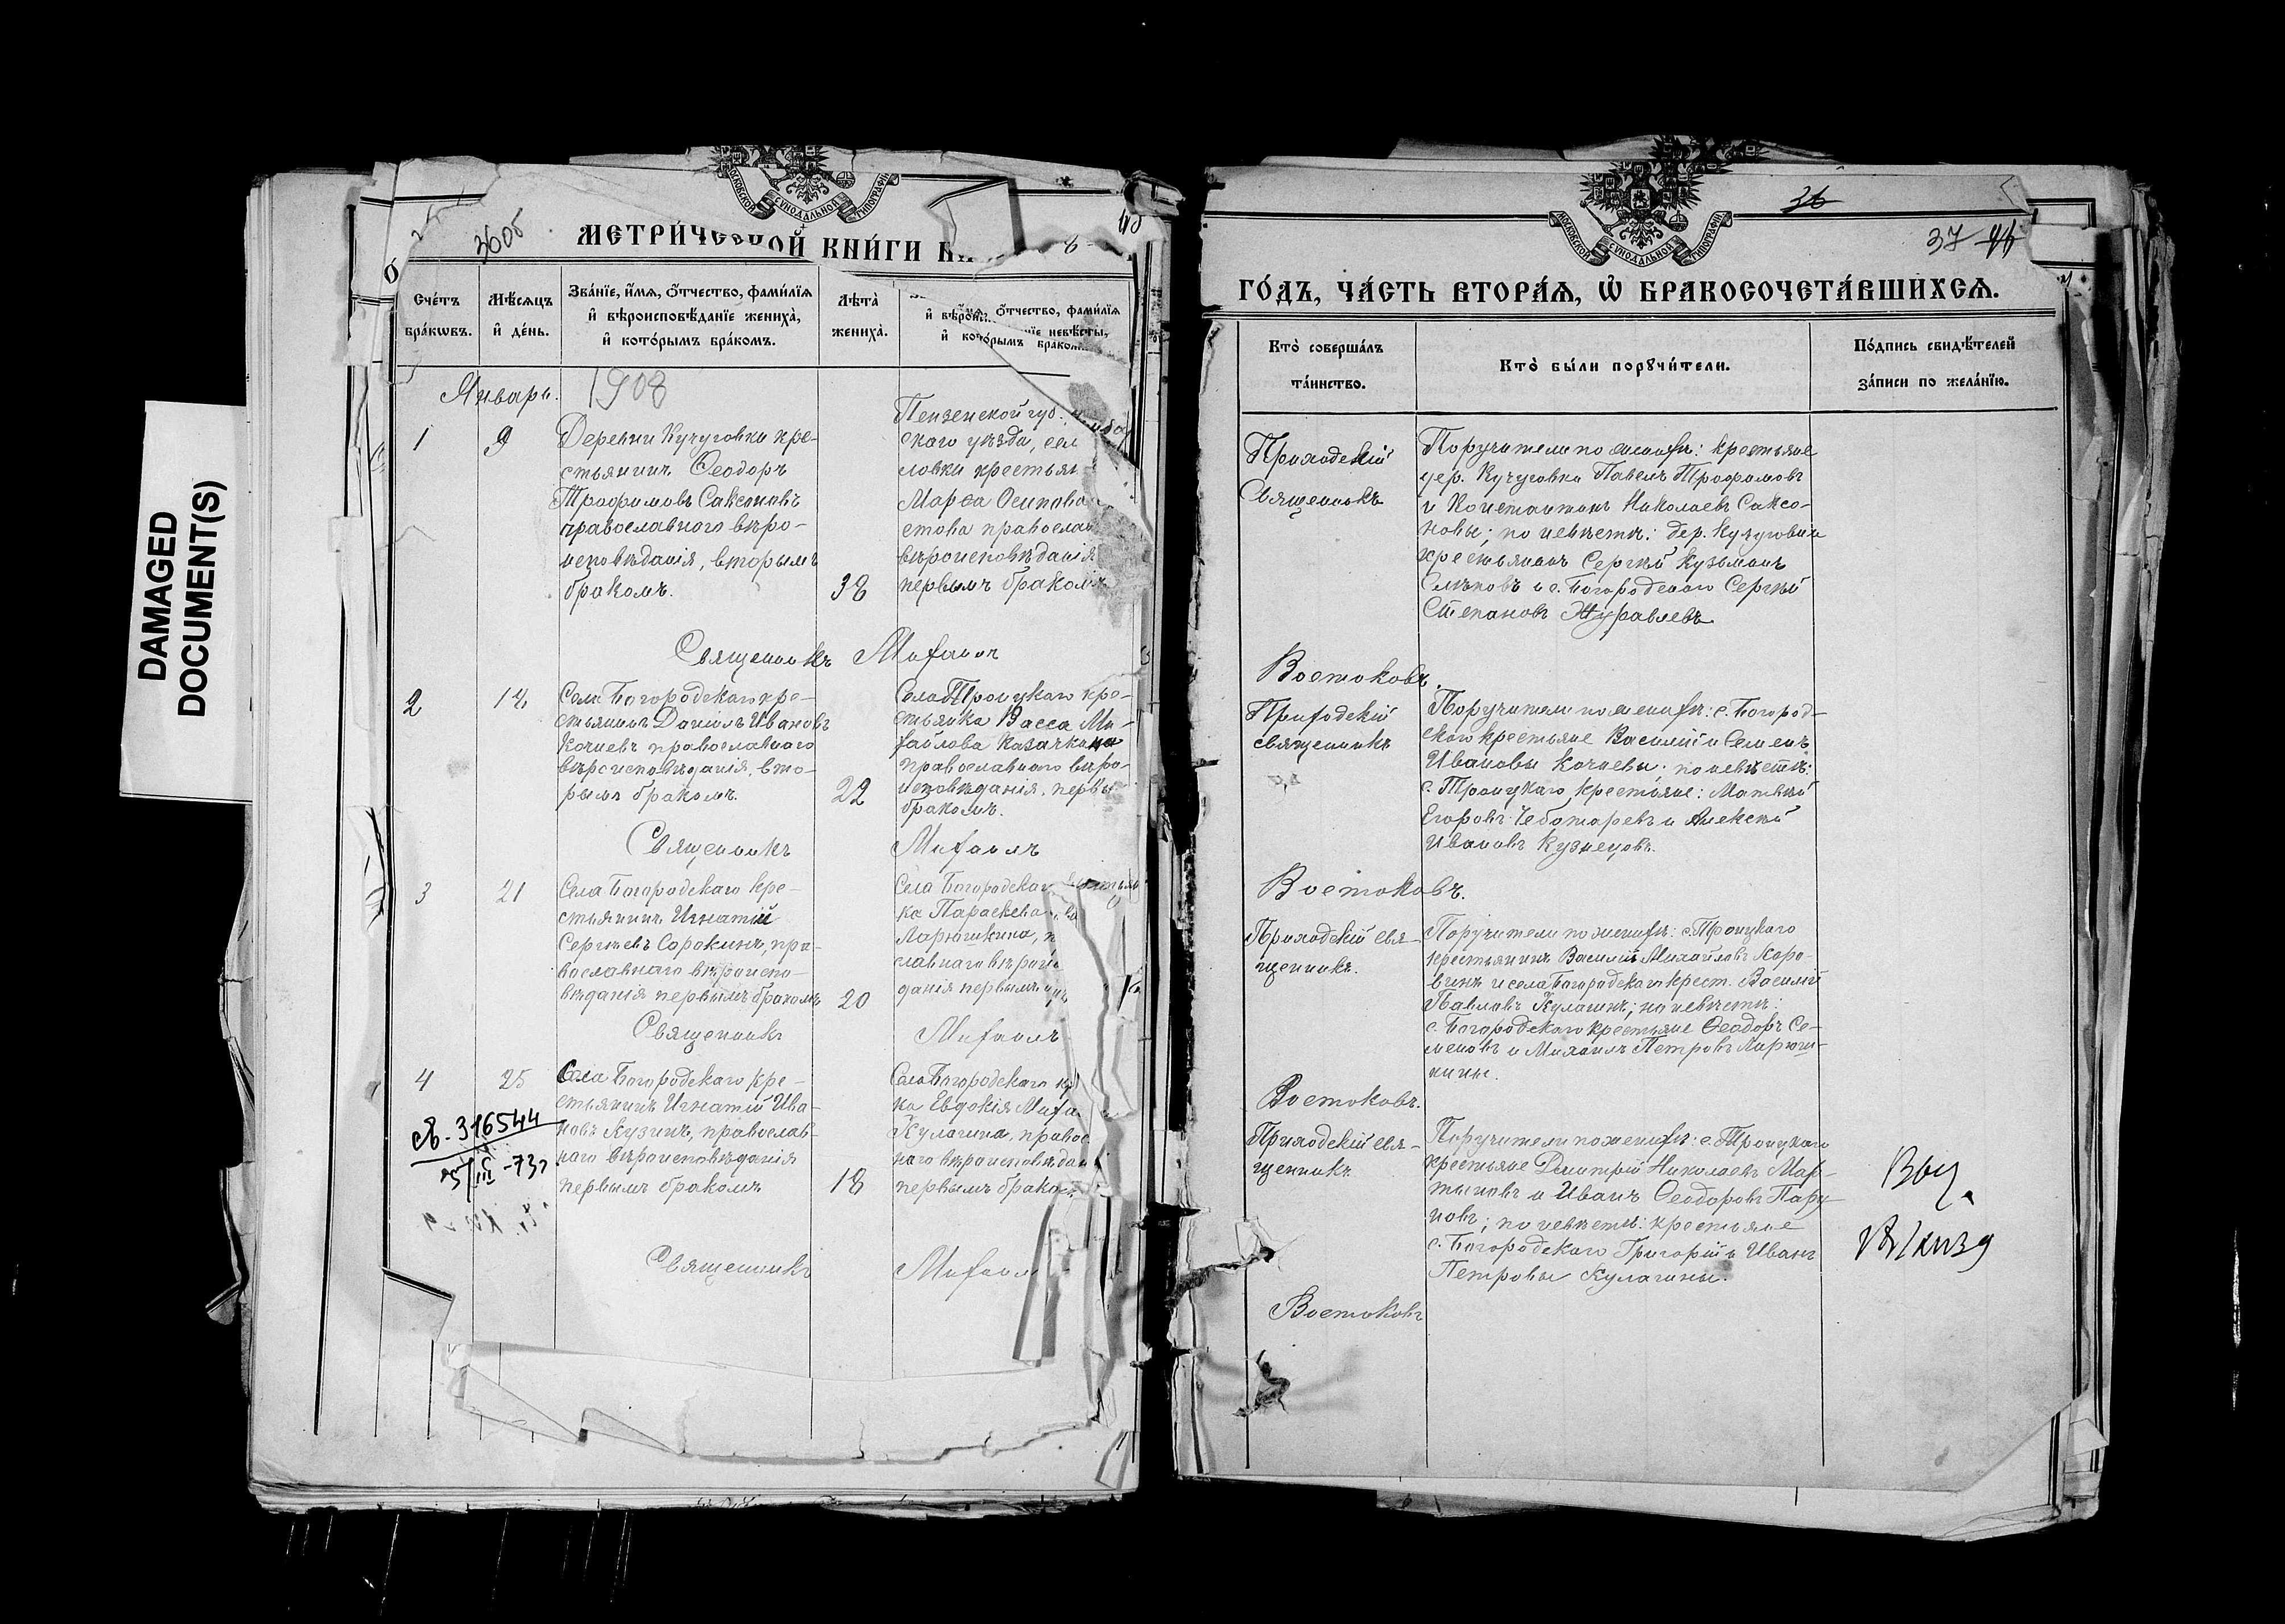 DAMAGED
DOCUMENT(S)
МОСКОВСКОЙ СѴНОДАЛЬНОЙ ТИПОГРАФІИ
36об
МЕТРИ́ЧЕСКОЙ КНИ́ГИ
Сче́тъ
бра́кѡвъ.
Мѣ́сяцъ
и҆ де́нь.
Зва́нїе, и҆́мя, ѻ҆́тчество, фами́лїя
и҆ вѣроисповѣ́данїе жениха̀,
и҆ кото́рымъ бра́комъ.
Лѣта̀
жениха̀.
ѻ҆́тчество, фами́лїя
невѣ́сты,
и҆ кото́рымъ
Январь.
1908
1
9
Деревни Кучуговки кре-
стьянинъ Ѳеодоръ
Трофимовъ Саксоновъ
православнаго вѣро-
исповѣданія, вторымъ
бракомъ.
38
Пензенской губ.
скаго уѣзда, сел
ловки крестьян
Марѳа Осипова
стова правосла
вѣроисповѣданія
первымъ бракомъ
Священникъ Михаилъ
2
12
Села Богородскаго кре-
стьянинъ Даніилъ Ивановъ
Кочневъ православнаго
вѣроисповѣданія, вто-
рымъ бракомъ.
22
Села Троицкаго кре-
стьянка Васса Ми-
хайлова Казачкина
православнаго вѣро-
исповѣданія, первы
бракомъ.
Священникъ Михаилъ
3
21
Села Богородскаго кре-
стьянинъ Игнатій
Сергѣевъ Сорокинъ, пра-
вославнаго вѣроиспо-
вѣданія первымъ бракомъ
20
Села Богородскаго
ка Параскева
Ларюшкина, п
славнаго вѣроис
данія первымъ
Священникъ Михаилъ
4
25
Села Богородскаго кре-
стьянинъ Игнатій Ива-
новъ Кузинъ, православ-
наго вѣроисповѣданія
первымъ бракомъ
18
Села Богородскаго кр
ка Евдокія Миха
Кулагина, правос
наго вѣроисповѣдан
первымъ бракомъ
св. 316544
Священникъ Михаил
МОСКОВСКОЙ СѴНОДАЛЬНОЙ ТИПОГРАФІИ
36
37
ГО́ДЪ, ЧА́СТЬ ВТОРА́Я, Ѡ҆ БРАКОСОЧЕТА́ВШИХСЯ.
Кто̀ соверша́лъ
та́инство.
Кто̀ бы́ли порꙋчи́тели.
По́дпись свидѣ́телей
за́писи по жела́нїю.
Приходскій
Священникъ
Поручители по женихѣ: крестьяне
дер. Кучуговки Павелъ Трофимовъ
и Константинъ Николаевъ Саксо-
новы; по невѣстѣ: дер. Кучуговки
крестьянинъ Сергѣй Кузьминъ
и с. Богородскаго Сергѣй
Степановъ Журавлевъ.
Востоковъ.
Приходскій
священникъ
Поручители по женихѣ: с. Богород-
скаго крестьяне Василій и Семенъ
Ивановы Кочневы; по невѣстѣ:
с. Троицкаго крестьяне: Матвѣй
Егоровъ Чеботаревъ и Алексѣй
Ивановъ Кузнецовъ.
Востоковъ.
Приходскій свя-
щенникъ.
Поручители по женихѣ: с. Троицкаго
крестьянинъ Василій Михайловъ Каро-
винъ и села Богородскаго крест. Василій
Павловъ Кулагинъ; по невѣстѣ:
с. Богородскаго крестьяне Ѳеодоръ Се-
меновъ и Михаилъ Петровъ Ларюш-
кины.
Востоковъ.
Приходскій свя-
щенникъ
Поручители по женихѣ: с. Троицкаго
крестьяне Дмитрій Николаевъ Мар-
тыновъ и Иванъ Ѳеодоровъ Пару
новъ; по невѣстѣ: крестьяне
с. Богородскаго Григорій и Иванъ
Петровы Кулагины.
Востоковъ